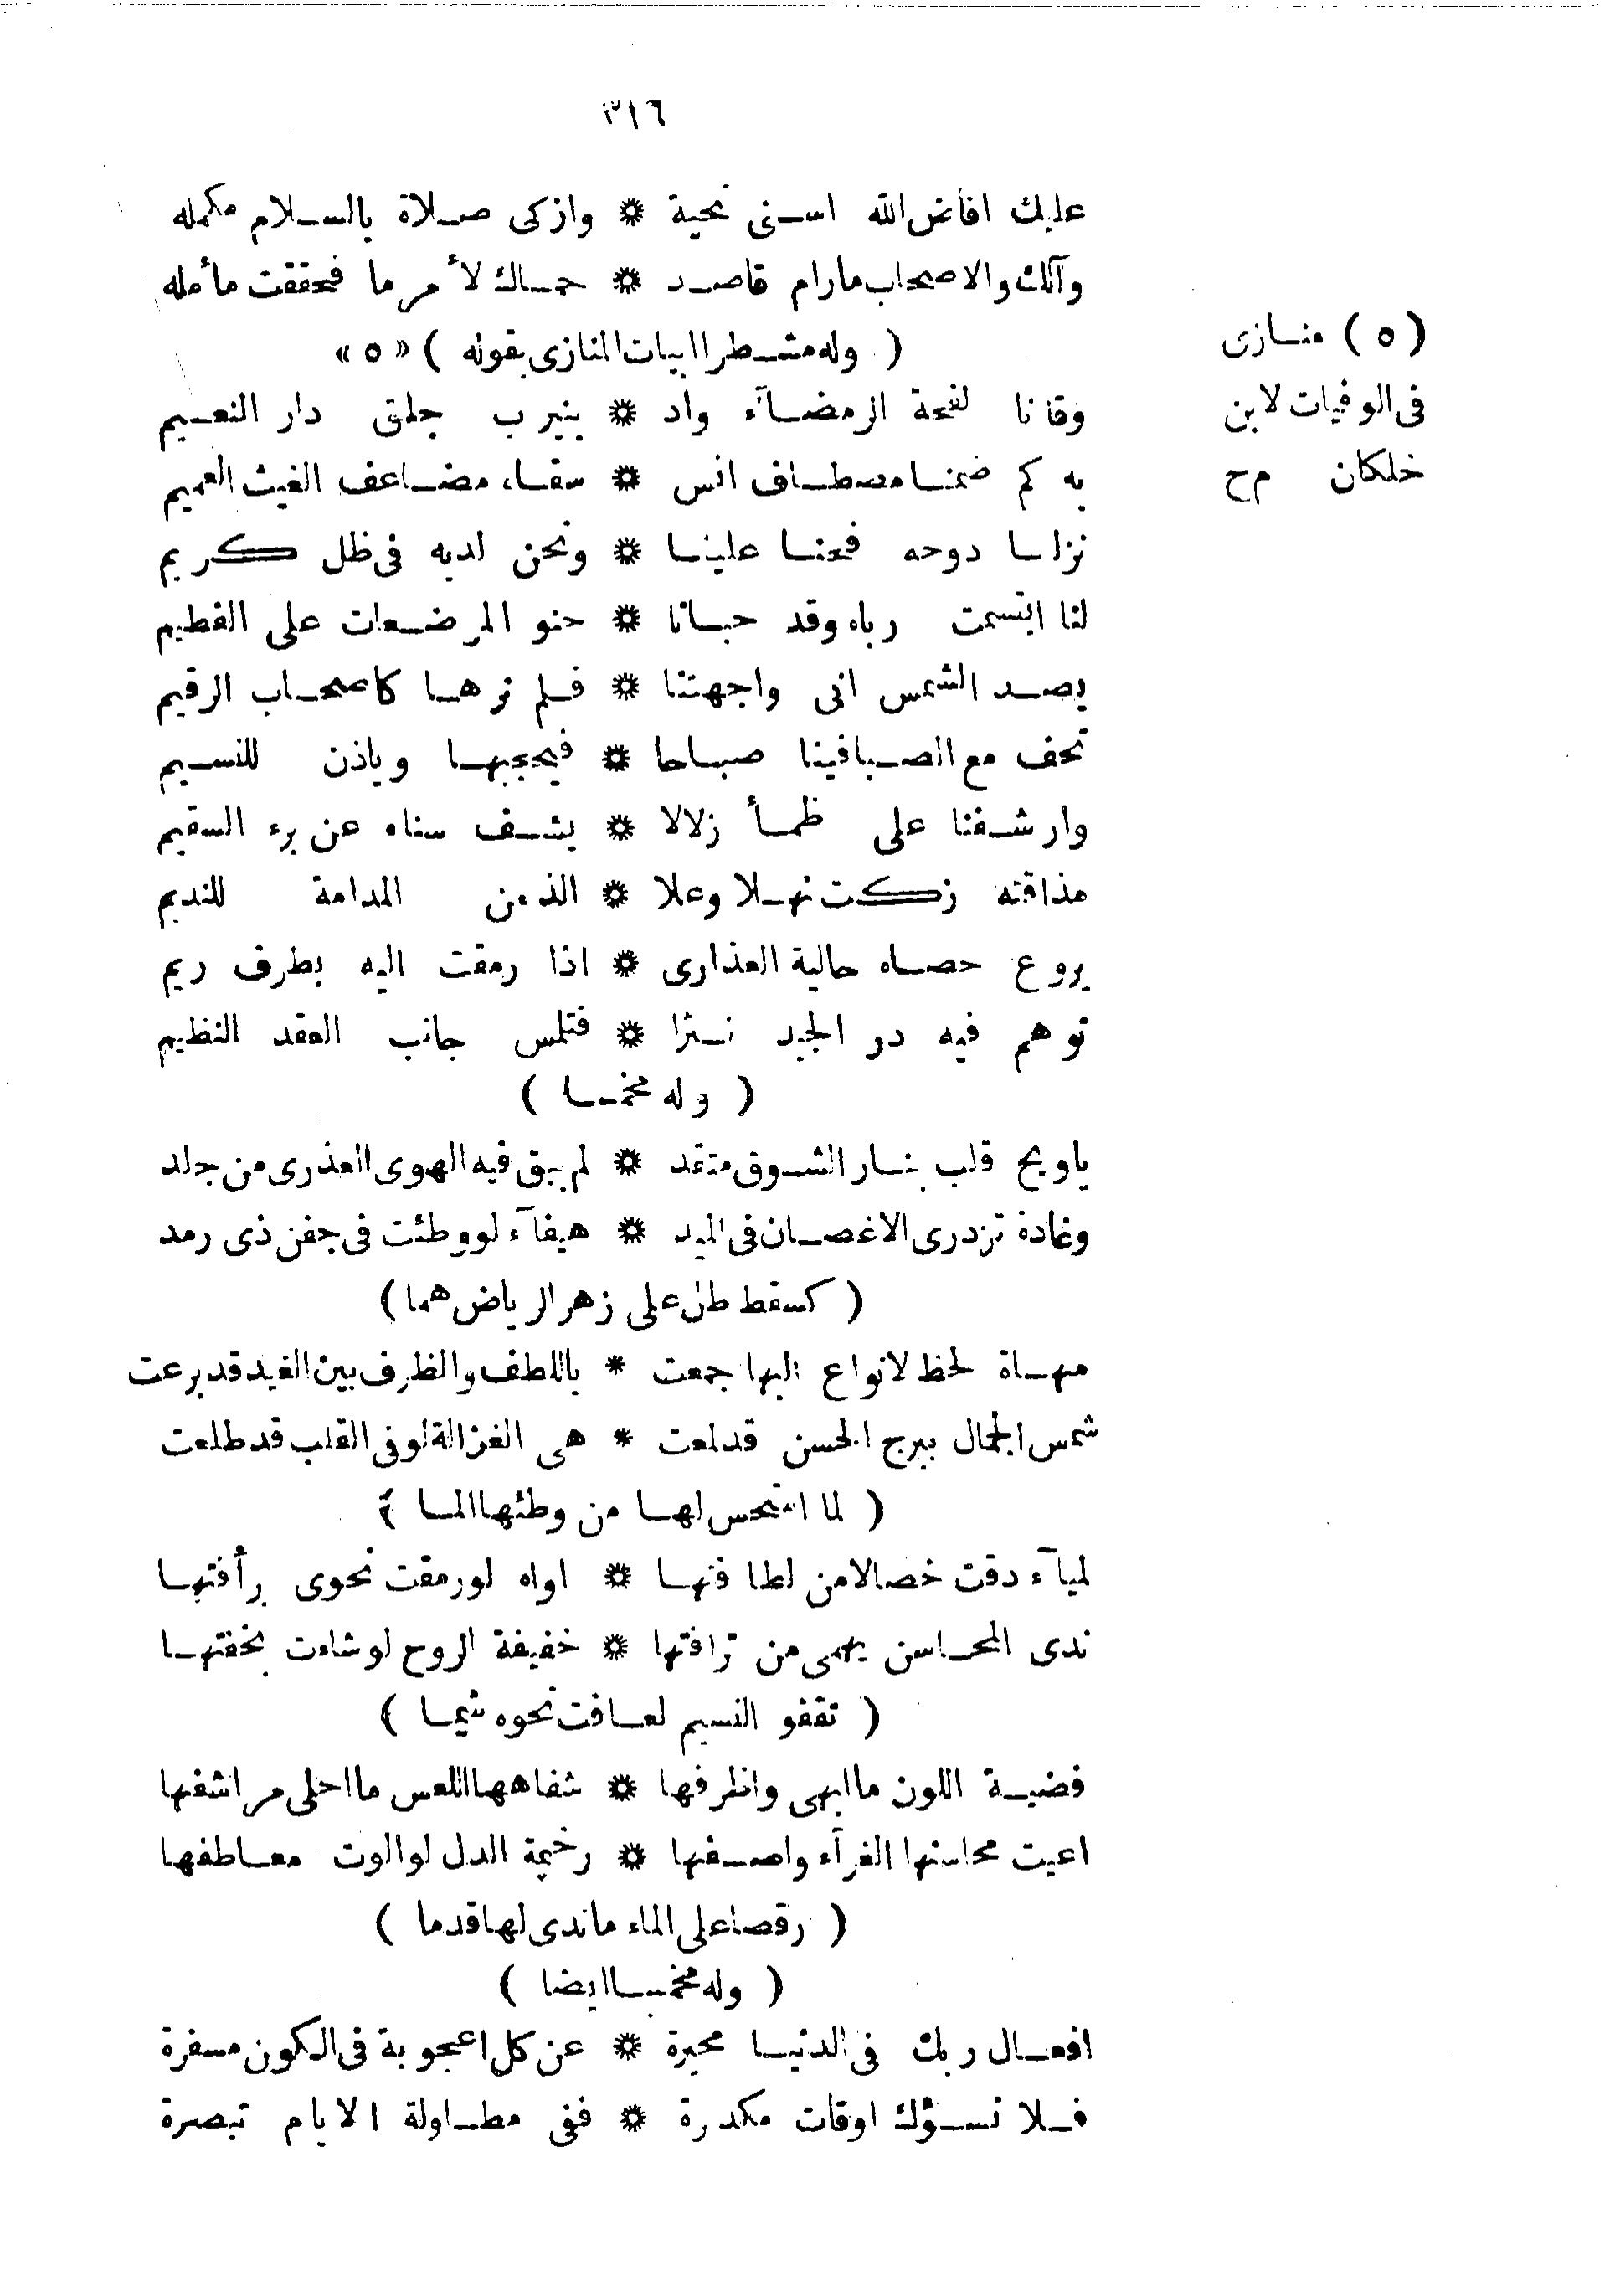 ٣١٦
عليك افاض الله اسنى تحية * وازكى صلاة بالسلام مكمله
وآلك والاصحاب مارام قاصد * حماك لأمر ما فحققت مأمله
( وله مشطرا ابيات المنازى بقوله ) «٥»
(٥) منازى
فى الوفيات لابن
خلكان م ح
وقانا لفحة الرمضآء واد * بنيرب جلق دار النعيم
به كم ضمنا مصطاف انس * سقاء مضاعف الغيث العميم
نزلنا دوحه فحنا علينا * ونحن لديه فى ظل كريم
لنا ابتسمت رباه وقد حبانا * حنو المرضعات على الفطيم
يصد الشمس انى واجهتنا * فلم نرها كاصحاب الرقيم
تحف مع الصبا فينا صباحا * فيحجبها وياذن للنسيم
وارشفنا على ظمأ زلالا * يشف سناه عن برء السقيم
مذاقته زكت نهلا وعلا * الذ من المدامة للنديم
يروع حصاه حالية العذارى * اذا رمقت اليه بطرف ريم
توهم فيه در الجيد نثرا * فتلمس جانب العقد النظيم
( وله مخمسا )
ياويح قلب بنار الشوق متقد * لم يبق فيه الهوى العذرى من جلد
وغادة تزدرى الاغصان فى الميد * هيفآء لو وطئت فى جفن ذى رمد
( كسقط طل على زهر الرياض هما )
مهاة لحظ لانواع البها جمعت * باللطف والظرف بين الغيد قد برعت
شمس الجمال ببرج الحسن قد لمعت * هى الغزالة لو فى القلب قد طلعت
( لما استحس لها من وطئها الما )
لمياآء دقت خصالا من لطافتها * اواه لو رمقت نحوى برأفتها
ندى المحاسن يهمى من ترافتها * خفيفة الروح لو شاءت بخفتها
( تقفو النسيم لعافت نحوه شيما )
فضية اللون ما ابهى واظرفها * شفاهها اللعس ما احلى مراشفها
اعيت محاسنها الغرآء واصفها * رخيمة الدل لو الوت معاطفها
( رقصا على الماء ماندى لها قدما )
( وله مخمسا ايضا )
افعال ربك فى الدنيا محيرة * عن كل اعجوبة فى الكون مسفرة
فلا تسؤك اوقات مكدرة * ففى مطاولة الايام تبصرة